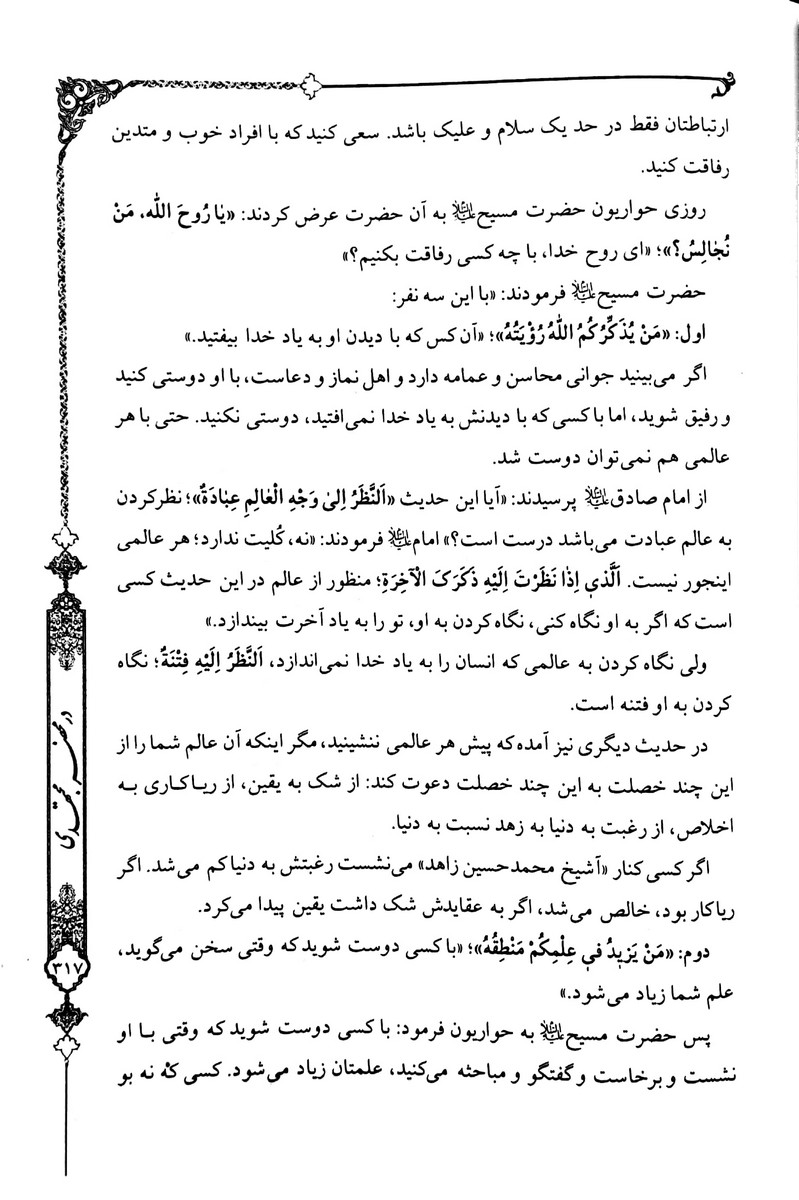 ارتباطتان فقط در حد یک سلام و علیک باشد. سعی کنید که با افراد خوب و متدین
رفاقت کنید.
روزی حواریون حضرت مسیح علیه‌السلام به آن حضرت عرض کردند: «یٰا رُوحَ اللّٰه، مَنْ
نُجٰالِسُ؟»؛ «ای روح خدا، با چه کسی رفاقت بکنیم؟»
حضرت مسیح علیه‌السلام فرمودند: «با این سه نفر:
اول: «مَنْ یُذَکِّرُکُمُ اللّٰهَ رُؤْیَتُهُ»؛ «آن کس که با دیدن او به یاد خدا بیفتید.»
اگر می‌بینید جوانی محاسن و عمامه دارد و اهل نماز و دعاست، با او دوستی کنید
و رفیق شوید، اما با کسی که با دیدنش به یاد خدا نمی‌افتید، دوستی نکنید. حتی با هر
عالمی هم نمی‌توان دوست شد.
از امام صادق علیه‌السلام پرسیدند: «آیا این حدیث «اَلنَّظَرُ اِلیٰ وَجْهِ الْعٰالِمِ عِبٰادَةٌ»؛ نظر کردن
به عالم عبادت می‌باشد درست است؟» امام علیه‌السلام فرمودند: «نه، کُلیت ندارد؛ هر عالمی
اینجور نیست. اَلَّذي اِذٰا نَظَرْتَ اِلَیْهِ ذَکَرَکَ الْآخِرَةِ؛ منظور از عالم در این حدیث کسی
است که اگر به او نگاه کنی، نگاه کردن به او، تو را به یاد آخرت بیندازد.»
ولی نگاه کردن به عالمی که انسان را به یاد خدا نمی‌اندازد، اَلنَّظَرُ اِلَیْهِ فِتْنَةٌ؛ نگاه
کردن به او فتنه است.
در حدیث دیگری نیز آمده که پیش هر عالمی ننشینید، مگر اینکه آن عالم شما را از
این چند خصلت به این چند خصلت دعوت کند: از شک به یقین، از ریاکاری به
اخلاص، از رغبت به دنیا به زهد نسبت به دنیا.
اگر کسی کنار «آشیخ محمدحسین زاهد» می‌نشست رغبتش به دنیا کم می‌شد. اگر
ریاکار بود، خالص می‌شد، اگر به عقایدش شک داشت یقین پیدا می‌کرد.
دوم: «مَنْ یَزیدُ في عِلْمِکُمْ مَنْطِقُهُ»؛ «با کسی دوست شوید که وقتی سخن می‌گوید،
علم شما زیاد می‌شود.»
پس حضرت مسیح علیه‌السلام به حواریون فرمود: با کسی دوست شوید که وقتی با او
نشست و برخاست و گفتگو و مباحثه می‌کنید، علمتان زیاد می‌شود. کسی که نه بو
در محضر مجتهدی
۳۱۷